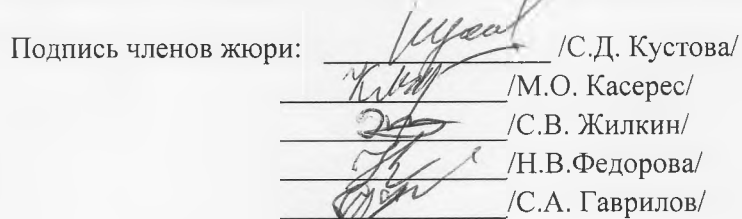 Подпись членов жюри: /С.Д. Кустова/
/М.О. Касерес/
/С.В. Жилкин/
/Н.В.Федорова/
/С.А. Гаврилов/